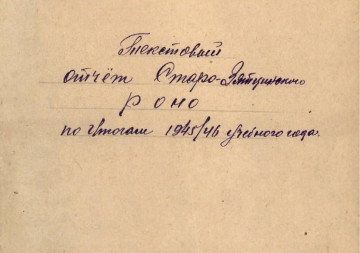 Текстовый
отчёт Старо-Зятцинского
роно
по итогам 1945/46 учебного года.